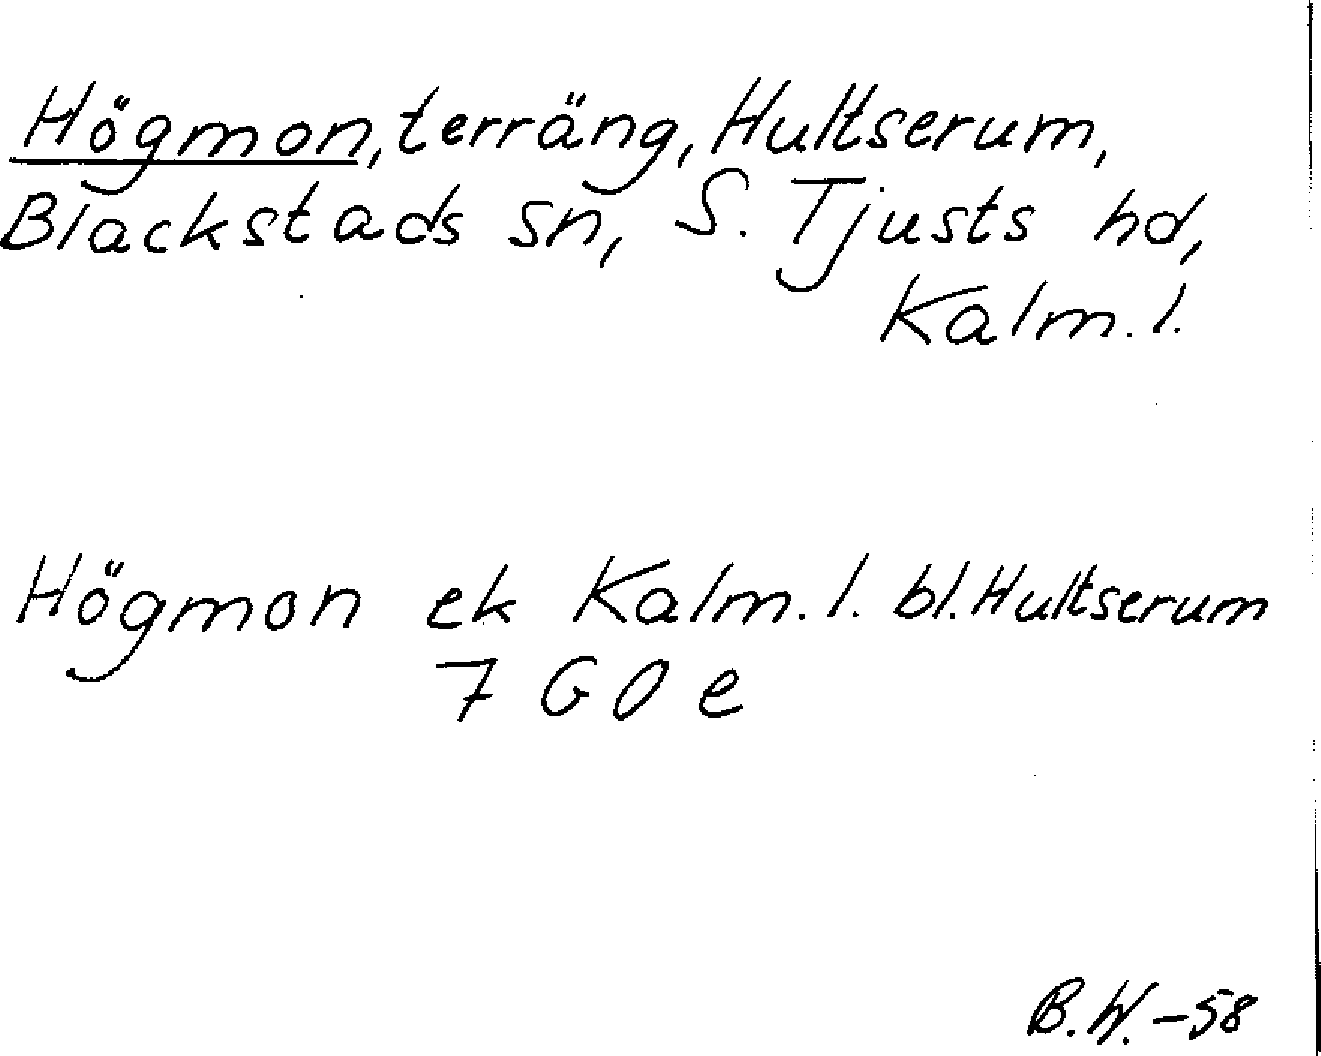 Högmon, terräng, Hultserum,
Blackstads sn, S. Tjusts hd,
Kalm. l.
Högmon ek Kalm. l. bl. Hultserum
7 G O e
B.W.-58